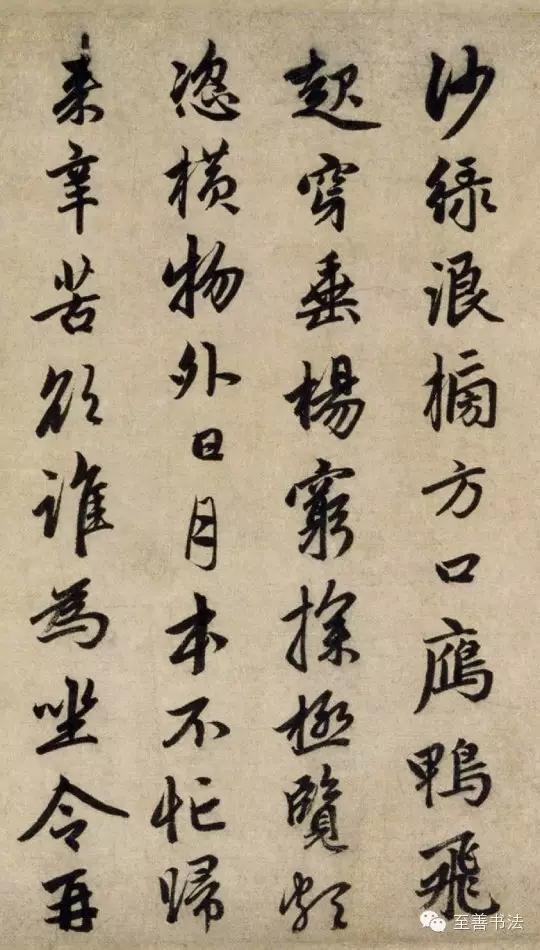 沙綠浪榜方口鴈鴨飛
起穿垂楊窮探極覽頗
恣橫物外日月本不忙歸
来辛苦欲誰為坐令再
至善书法